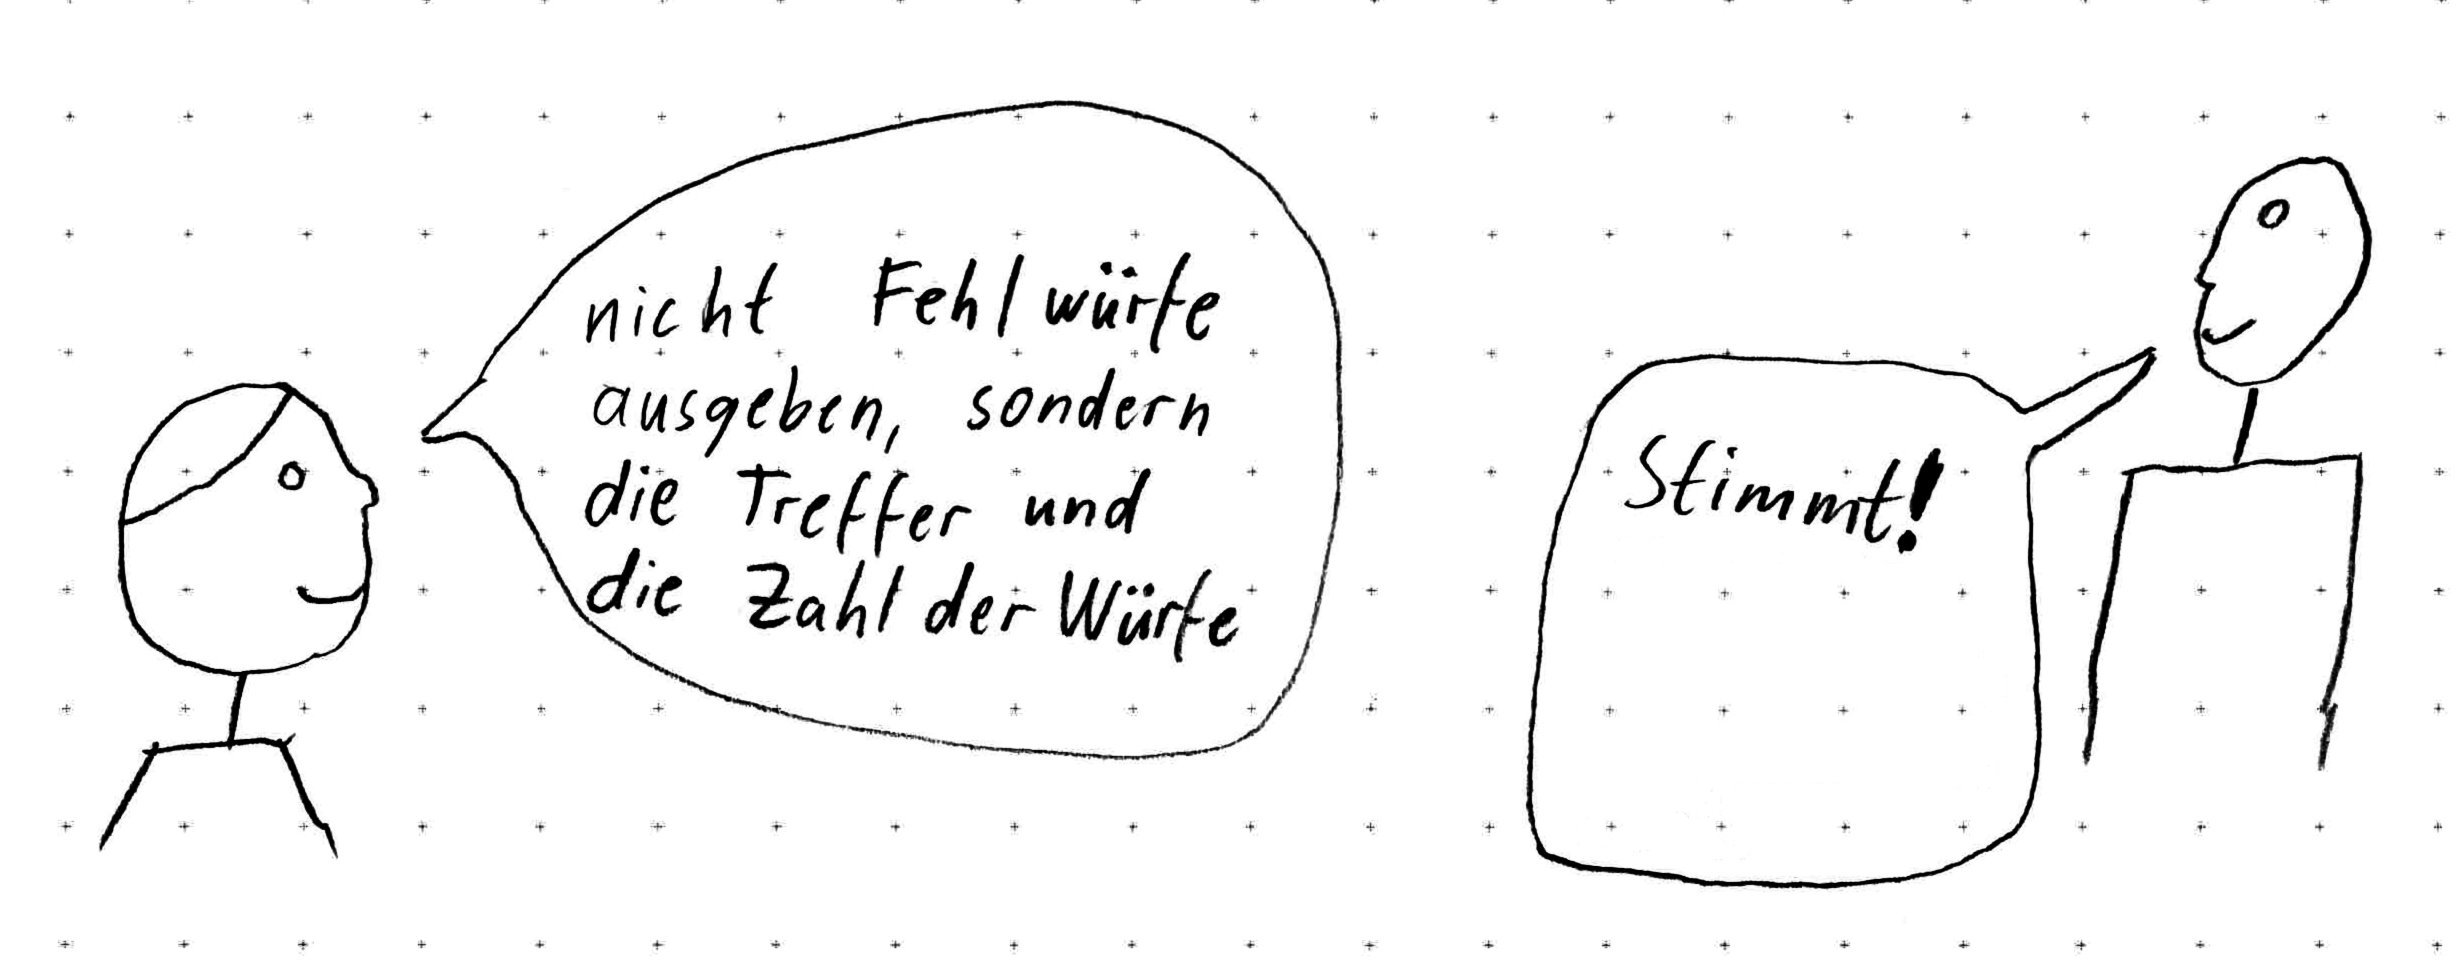 nicht Fehlwürfe
ausgeben, sondern
die Treffer und
die Zahl der Würfe
Stimmt!